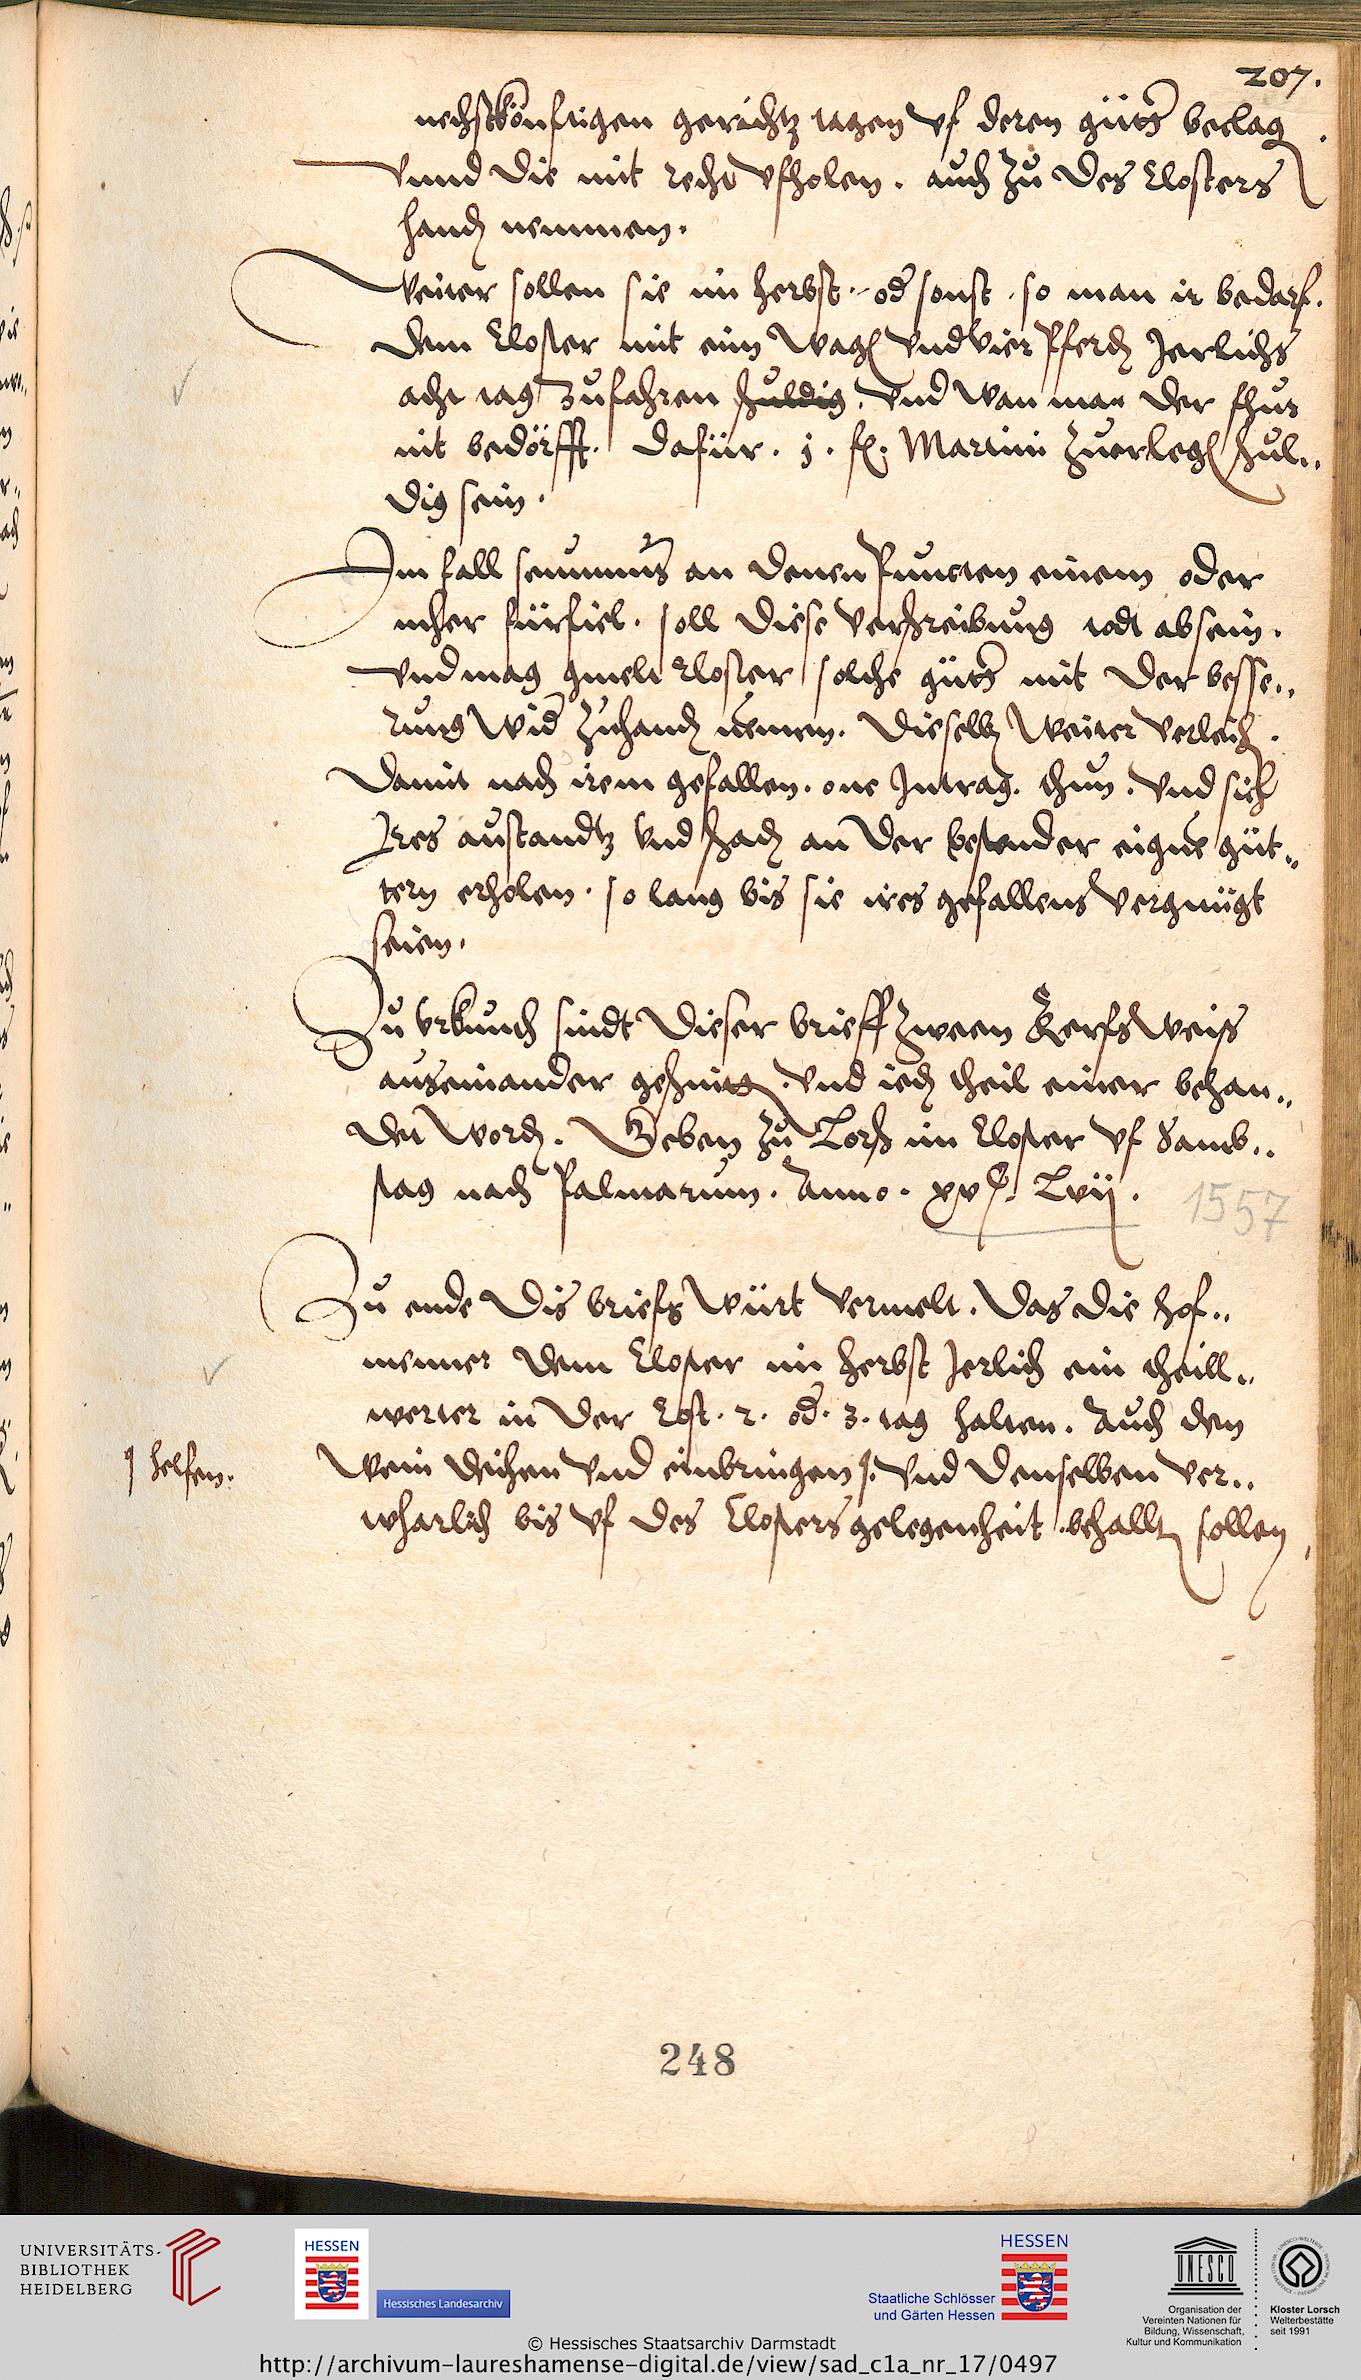 207.
nechstkönftigen gerichtz tagen vf deren gütter beclag
vnnd die mit recht vfholen. auch zu des Closters
hand nemmen.
Weiter sollen sie im herbst. oder sonst. so man ir bedarf.
dem Closter mit eim wagen vnd vier Pferden Jerlichs
acht tag zufahren schuldig. vnd wan man der fhur
nit bedörfft. dafür. j. fl. Martini zuerlegen schul..
dig sein.
Im fall seumnus an denen Puncten einem oder
mher fürfiel. soll diese verschreibung todt absein.
vnd mag gmelt Closter solche gütter mit der besse..
rung wider zuhanden nemen. dieselben weiter verleihen.
damit nach irem gefallen. one Intrag. thun. vnd sich
Ires austandtz vnd schaden an der bestender eigne güt..
tern erholen. so lang bis sie ires gefallens vergnügt
seien.
Zu vrkundt sindt dieser brieff zween Kerfs weiss
auseinander geschnitten. vnd ieden theil einer behan..
det worden. Geben zu Lorsch im Closter vf Samb..
stag nach Palmarum. Anno. xvC. Lvij.
1557
Zu ende dis briefs würt vermelt. das die hof..
menner dem Closter im herbst Jerlich ein theill..
werter in der Cost. 2. oder. 3. tag halten. Auch den
wein deihen vnd einbringen. vnd denselben ver..
helfen.
wharlich bis vf des Closters gelegenheit behallten sollen
248
UNIVERSITÄTS-
BIBLIOTHEK
HEIDELBERG
HESSEN
Hessisches Landesarchiv
HESSEN
Staatliche Schlösser
und Gärten Hessen
UNESCO
Organisation der
Vereinten Nationen für
Bildung, Wissenschaft,
Kultur und Kommunikation
Kloster Lorsch
Welterbestätte
seit 1991
© Hessisches Staatsarchiv Darmstadt
http://archivum-laureshamense-digital.de/view/sad_c1a_nr_17/0497